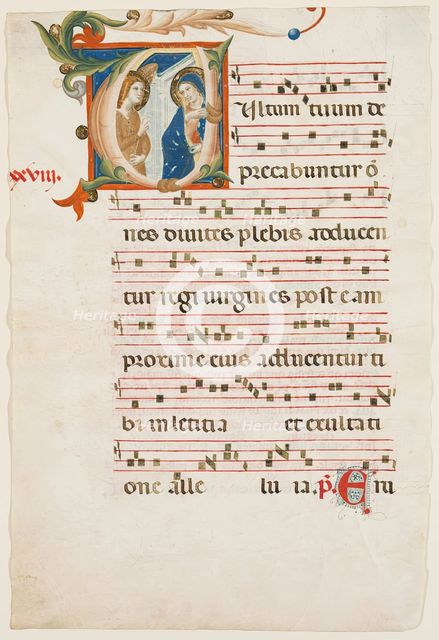 Vultum tuum de
xxviii.
precabuntur o
nes divites plebis adducen
tur regi virgines post eam
proxime eius adducentur ti
bi in letitia et exultati
one alle lu ia. p. Eru
Heritage